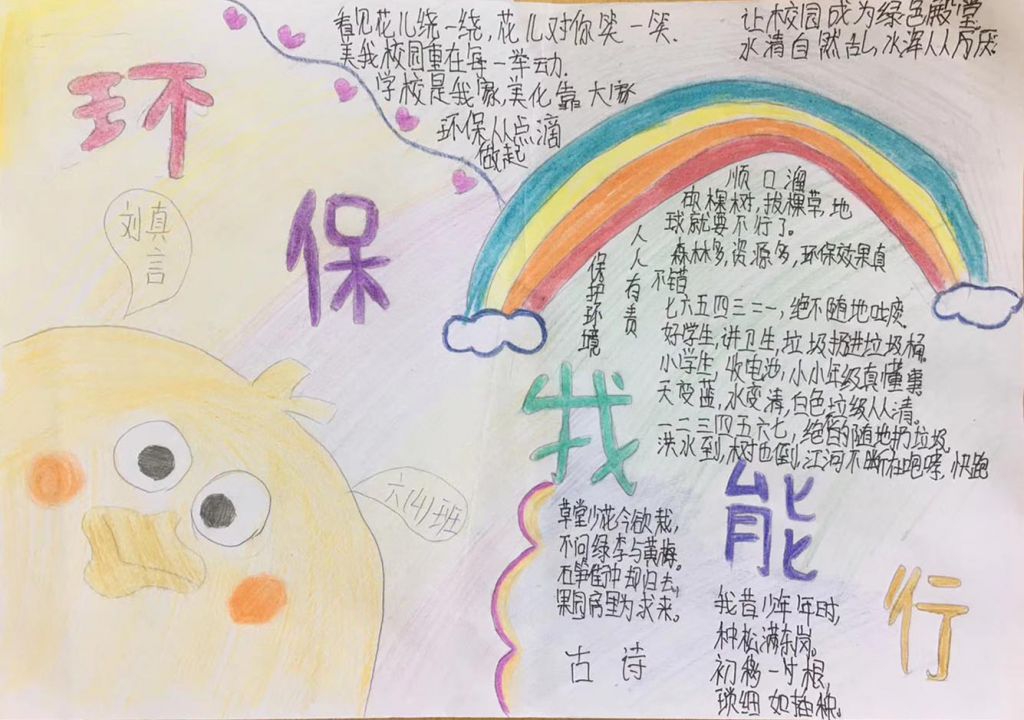 环
保
我
能
行
看见花儿绕一绕,花儿对你笑一笑.
美我校园重在每一举动.
学校是我家,美化靠大家
环保从点滴
做起
让校园成为绿色殿堂
水清自然乱,水浑人人厉厌
刘真言
六(4)班
保护环境
人人有责
顺口溜
砍棵树,拔棵草,地
球就要不行了。
森林多,资源多,环保效果真
不错
七六五四三二一,绝不随地吐痰
好学生,讲卫生,垃圾扔进垃圾桶。
小学生,收电池,小小年级真懂事
天变蓝,水变清,白色垃圾人人清。
一二三四五六七,绝不随地扔垃圾。
洪水到,树也倒,江河不断在咆哮,快跑
草堂少花今欲栽,
不问绿李与黄梅。
石笋街中却归去,
果园房里为求来。
古诗
我昔少年年时,
种松满东岗。
初移一寸根,
琐细如插秧。